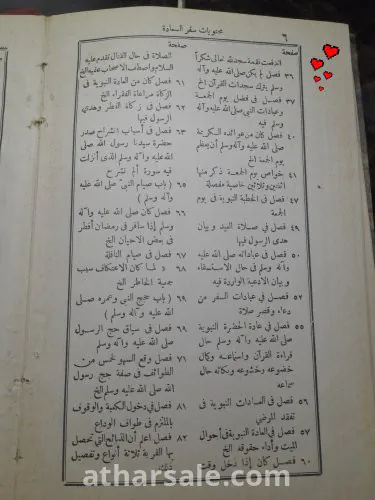 ٦ محتويات سفر السعادة
صفحة
اندفعت نقمة سجد لله تعالى شكرا
٣٦ فصل لم يكن صلى الله عليه وآله
وسلم يترك سجدات القرآن الخ
٣٧ فصل في فضل يوم الجمعة
وعبادات النبي صلى الله عليه وآله
وسلم فيه
٤٠ فصل كان من عوائده الكريمة
صلى الله عليه وآله وسلم أن يعظم
يوم الجمعة الخ
٤١ خواص يوم الجمعة ذكر منها
اثنتين وثلاثين خاصية مفصلة
٤٥ فصل في الخطبة النبوية في يوم
الجمعة
٤٩ فصل في صلاة العيد وبيان
هدى الرسول فيها
٥٠ فصل في عباداته صلى الله عليه
وآله وسلم في حال الاستسقاء
وبيان الادعية الواردة فيه
٥٢ فصل في عبادات السفر من
دعاء وقصر صلاة
٥٥ فصل في عادة الحضرة النبوية
صلى الله عليه وآله وسلم حال
قراءة القرآن واستماعه وكمال
خضوعه وخشوعه وبكائه حال
سماعه
٥٦ فصل في العادات النبوية في
تفقد المرضى
٥٧ فصل في العادة النبوية في أحوال
الميت وأداء حقوقه الخ
٦٠ فصل كان إذا دخل وقت
صفحة
الصلاة في حال القتال تقدم عليه
السلام واصطف الاصحاب خلفه الخ
٦١ فصل كان من العادة النبوية في
الزكاة مراعاة الفقراء الخ
٦٢ فصل في زكاة الفطر وهدي
الرسول فيها
٦٣ فصل في أسباب انشراح صدر
حضرة سيدنا رسول الله صلى
الله عليه وآله وسلم الذى أنزلت
فيه سورة ألم نشرح
٦٥ (باب صيام النبي صلى الله عليه
وآله وسلم)
٦٦ فصل كان صلى الله عليه وآله
وسلم إذا سافر في رمضان أفطر
في بعض الاحيان الخ
٦٧ فصل في صيام النافلة
٦٨ « لما كان الاعتكاف سبب
جمعية الخاطر الخ
٦٩ (باب حجج النبي وعمره صلى
الله عليه وآله وسلم)
٧٠ فصل في سياق حج الرسول
صلى الله عليه وآله وسلم
٧٥ فصل وقع السهو لخمس من
الطوائف في صفة حج رسول
الله صلى الله عليه وسلم الخ
٨١ فصل في دخول الكعبة والوقوف
بالملتزم في طواف الوداع
٨٢ فصل اعلم أن الذبائح التي تحصل
بها القربة ثلاثة أنواع وتفصيل
atharsale.com